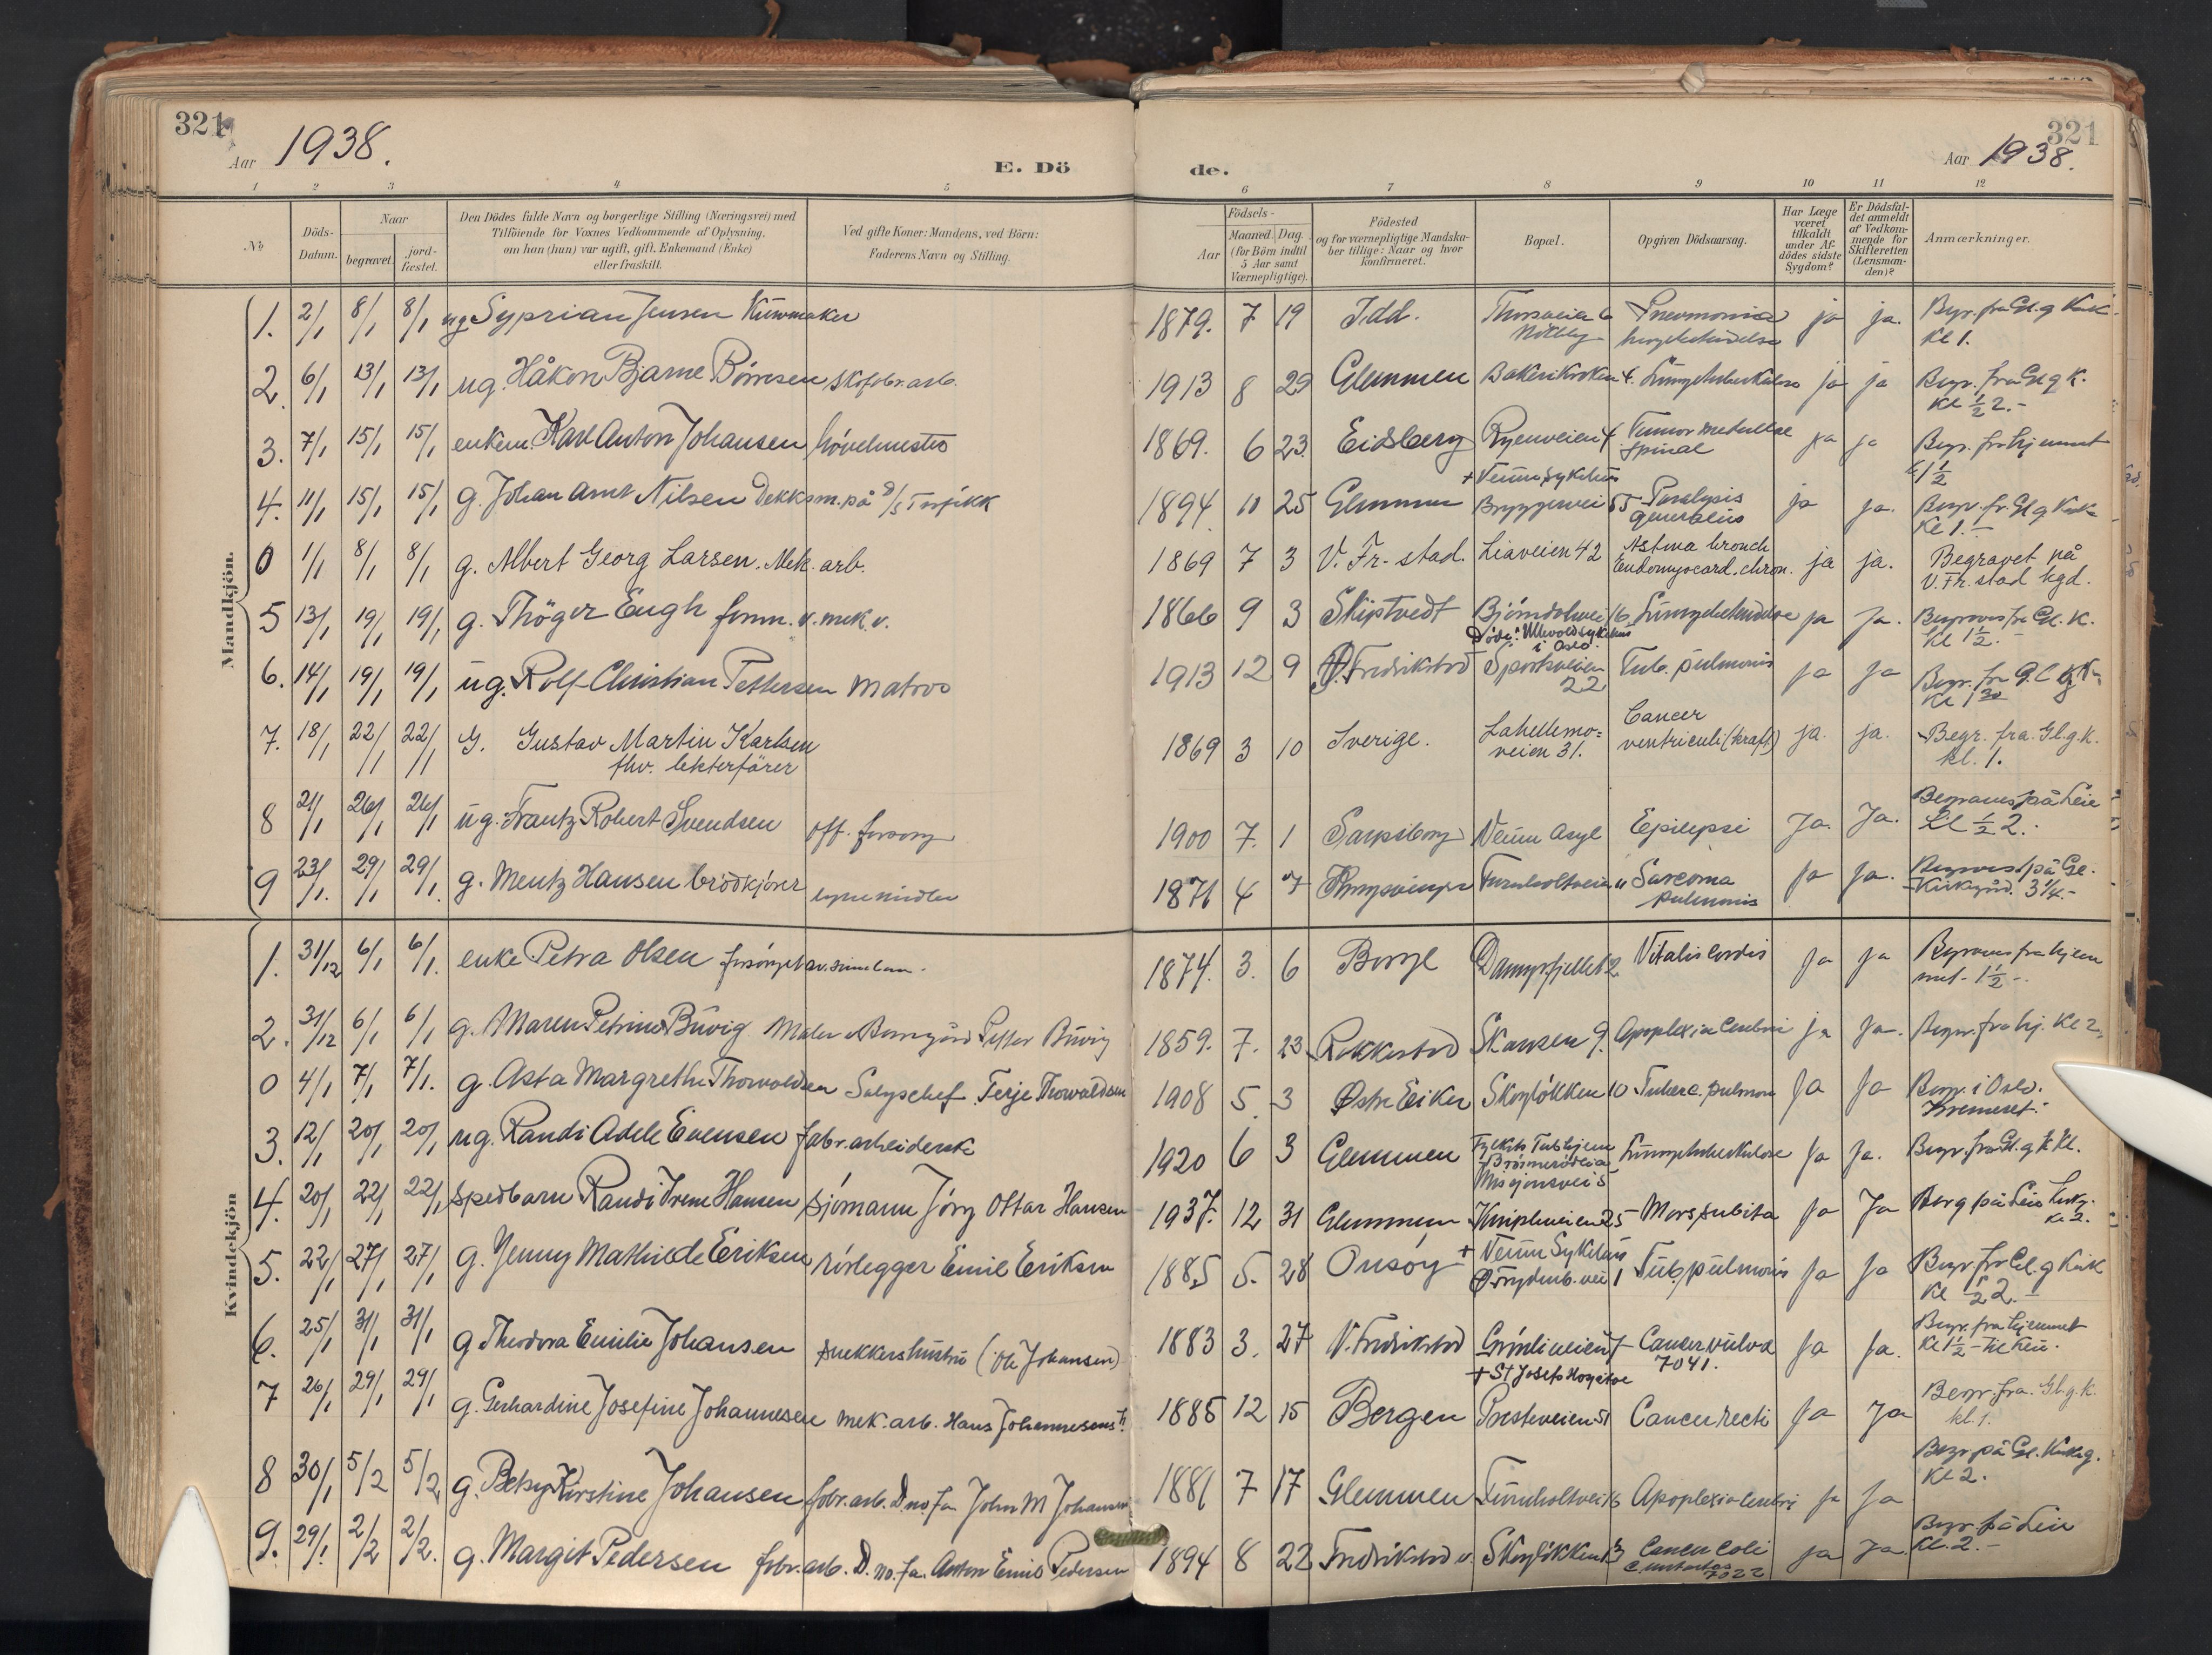 321
Aar 1938.
E. Dö
de.
321
Aar 1938.
1 2 3 4 5 6 7 8 9 10 11 12
No
Döds-
Datum.
Naar
begravet.
jord-
fæstet.
Den Dödes fulde Navn og borgerlige Stilling (Næringsvei) med
Tilföiende for Voxnes Vedkommende af Oplysning,
om han (hun) var ugift, gift, Enkemand (Enke)
eller fraskilt.
Ved gifte Koner: Mandens, ved Börn:
Faderens Navn og Stilling.
Födsels-
Aar
Maaned. Dag.
(for Börn indtil
5 Aar samt
Værnepligtige).
Födested
og for værnepligtige Mandska-
ber tillige: Naar og hvor
konfirmeret.
Bopæl.
Opgiven Dödsaarsag.
Har Læge
været
tilkaldt
under Af-
dödes sidste
Sygdom?
Er Dödsfal-
det anmeldt
af Vedkom-
mende for
Skifteretten
(Lensman-
den)?
Anmærkninger.
Mandkjön.
1. 2/1 8/1 8/1 ug Syprian Jensen 1879. 7 19 Idd. Pneumonia ja ja. Begr. fra Gl. g Kirk.
kl 1.
2. 6/1 13/1 13/1 ug. Håkon Bjarne Börresen skofabr. arb. 1913 8 29 Glemmen Bakerikroken 4. Lungetuberkulose ja ja Begr. fra Gl g K.
Kl ½ 2.-
3. 7/1 15/1 15/1 enkem. Karl Anton Johansen hövelmester 1869. 6 23. Eidsberg Ryenveien 4 Tumor medullae
spinal ja ja Begr. fra hjemmet
1½
4. 11/1 15/1 15/1 g. Johan Arnt Nilsen Dekksm. på D/S 1894 10 25 Glemmen + Veum Sykehus
Bryggervei 55 Paralysis
generalis ja ja. Begr. fr. Gl g Kirke
Kl 1.-
0 1/1 8/1 8/1 g. Albert Georg Larsen. Mek. arb. 1869 7 3 V. Fr.-stad. Liaveien 42 Astma bronch
Endomyocard. chron. ja ja. Begravet på
V. Fr. stad kgd.
5 13/1 19/1 19/1 g. Thöger Engh form. v. mek. v. 1866 9 3 Skiptvedt 16 Lungebetendelse ja ja. Begraves fra Gl. K.
Kl 1½.-
6. 14/1 19/1 19/1 ug. Rolf Christian Pettersen Matros 1913 12 9 Fredrikstad Döde: Ullevold sykehus
i Oslo.
Sportsveien
22 Tub. pulmonis ja ja Begr. fra Gl g K.
Kl 1 30
7. 18/1 22/1 22/1 g. Gustav Martin Karlsen
fhv. lekterförer 1869 3 10 Sverige. Lahellemo=
veien 31. Cancer
ventriculi (kraft) ja. ja. Begr. fra. Gl. g. K.
kl. 1.
8 21/1 26/1 26/1 ug. Frantz Robert Svendsen off. forsorg 1900 7. 1 Sarpsborg Veum Asyl Epilepsi Ja. Ja. Begraves på Leie
Kl ½ 2.
9 23/1. 29/1 29/1. g. Mentz Hansen brödkjörer egne midler 1871 4 7 Furuholtveien 11 Sarcoma
pulmonis ja ja. Begraves på Gl.
Kirkegård. 3¼.-
Kvindekjön
1. 31/12 6/1 6/1. enke Petra Olsen forsörget av sine barn. 1874. 3. 6 Borge Damyrfjellet 2 Vitalis Cordis ja ja Begraves fra hjem
met - 1½-.
2. 31/12 6/1 6/1 g. Maren Petrine Buvig Petter Buvig 1859. 7. 23 Rakkestad Skansen 9. Apoplexia Cerebri ja ja. Begr. fra hj. Kl 2
0 4/1 7/1 7/1. g. Asta Margrethe Thorvaldsen Salgschef Terje Thorvaldsen 1908 5. 3 Östre Eiker Skoglökken 10 Tuberc. pulmon ja ja Begr. i Oslo.
Kremert.
3. 12/1 20/1 20/1 ug. Randi Adele Evensen fabr. arbeiderske 1920 6 3 Glemmen Fylkets Tubhjem
Misjonsvei 5 Lungetuberkulose ja ja. Begr. fra Gl. g K Kl.
4. 20/1 22/1 22/1 spedbarn Randi Irene Hansen sjömann Jörg Ottar Hansen 1937. 12 31 Glemmen Knipleveien 25 Mors subita ja Ja Berg på Leie kirkg.
Kl 2.
5. 22/1 27/1 27/1 g. Jenny Mathilde Eriksen rörlegger Emil Eriksen 1885 5. 28 Onsöy + Veum Sykehus
vei 1 Tub. pulmonis ja ja Begr. fra Gl. g Kirk
Kl ½ 2.-
6. 25/1 31/1 31/1 g Theodora Emilie Johansen snekkershustru (Ole Johansen) 1883 3. 27 V. Fredrikstad Grönliveien 7
+ St Josefs Hospital Cancer vulva
7041. ja ja. Begr. fra hjemmet
Kl 1½ - til Leie.
7 26/1 29/1 29/1 g. Gerhardine Josefine Johannesen mek. arb. Hans Johannesens h. 1885 12 15 Bergen Presteveien 51 Cancer recti ja Ja Begr. fra. Gl. g. K.
kl. 1.
8 30/1 5/2 5/2 g. Betsy Kirstine Johansen fabr. arb. D no. fa John M Johansen 1881 7 17 Glemmen Furuholtvei 6 Apoplexia Cerebri ja ja Begr på Gl. Kirkeg.
Kl 2.
9. 29/1. 2/2 2/2. g. Margit Pedersen fabr. arb. D. no. fa. Anton Emil Pedersen 1894 8 22 Fredrikstad v. Skoglökken 13 Cancer Coli
7022 ja Ja. Begr. på Leie
Kl. 2.-